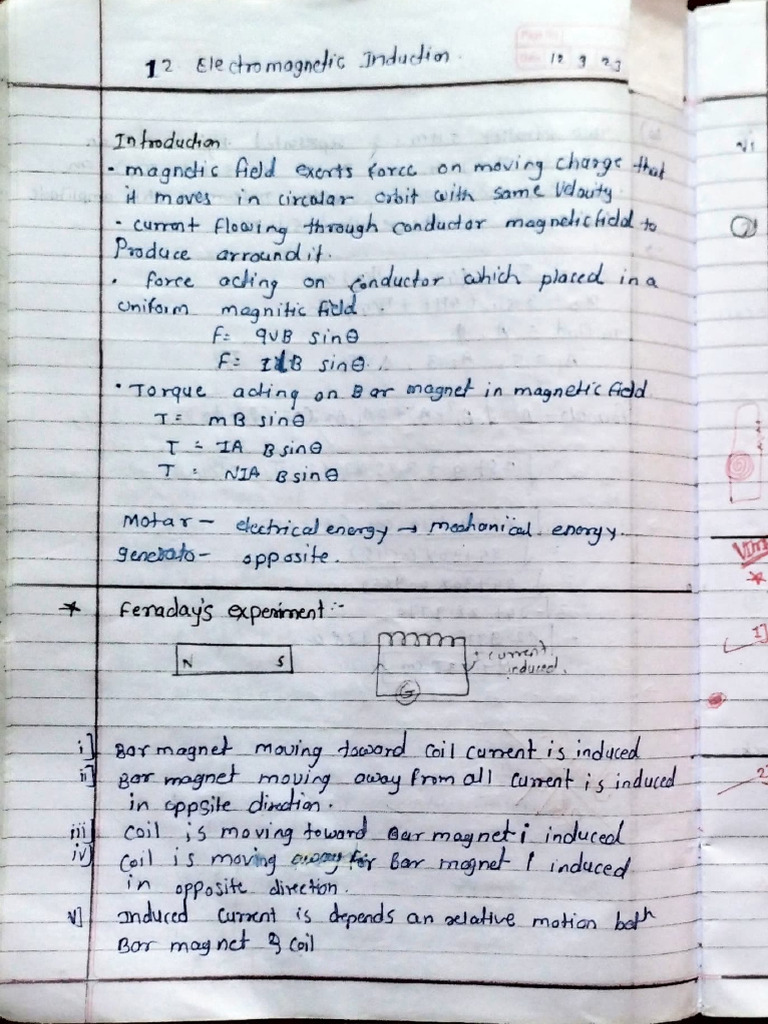 12 Electromagnetic Induction.
Page No.
Date 12 3 23
Introduction
• magnetic field exerts force on moving charge that
it moves in circular orbit with same velouty.
• current flowing through conductor magneticfield to
Produce arround it.
• force acting on conductor which placed in a
uniform magnitic field.
F= qVB sinθ
F= IlB sinθ
• Torque acting on Bar magnet in magnetic field.
T = mB sinθ
T = IA B sinθ
T = NIA B sinθ
Motar - electrical energy → mechanical energy.
generato- opposite.
* Feraday's experiment:-
N S
current
induced.
G
i] Bar magnet moving toward coil current is induced
ii] Bar magnet moving away from all current is induced
in oppsite direction.
iii] coil is moving toward Bar magnet i induced
iv] coil is moving for Bar magnet I induced
in opposite direction.
v] Induced current is depends an relative motion both
Bar magnet & coil
VI
2
*
I]
2]